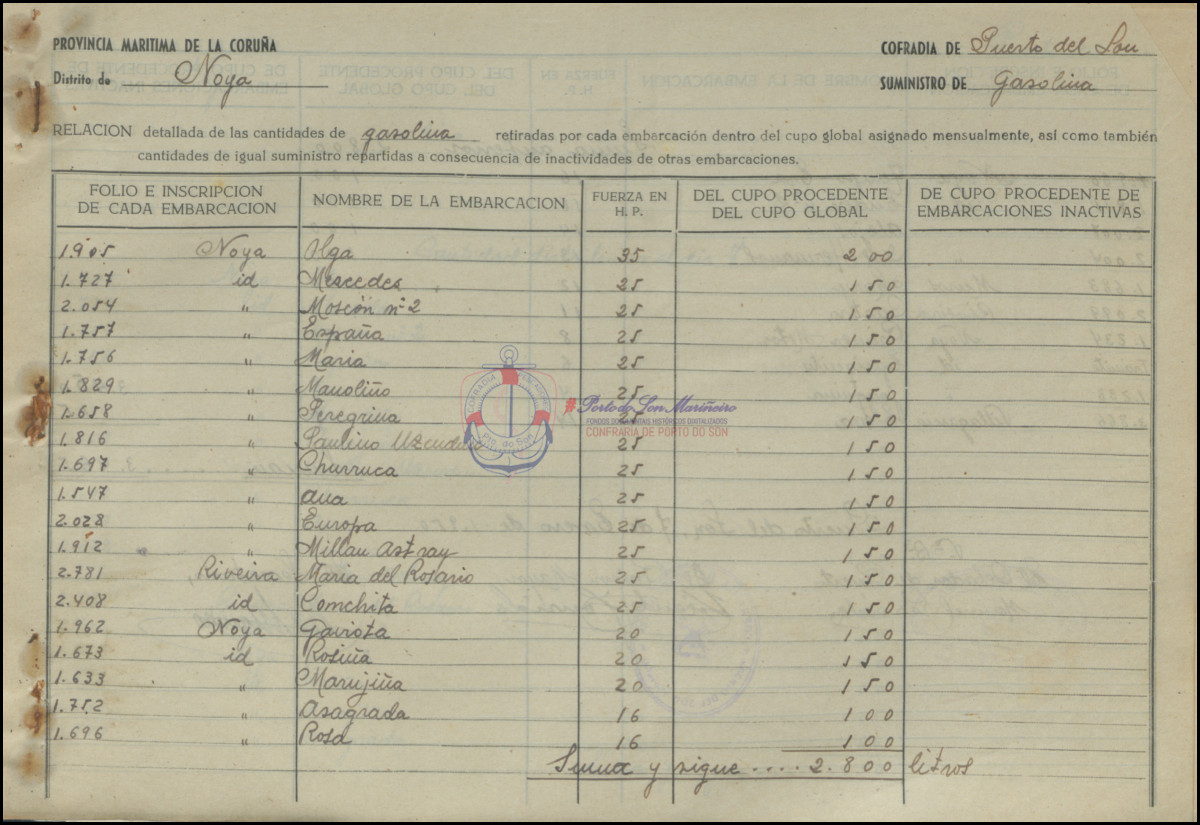 PROVINCIA MARITIMA DE LA CORUÑA
COFRADIA DE Puerto del Son
Distrito de Noya
SUMINISTRO DE Gasolina
RELACION detallada de las cantidades de gasolina retiradas por cada embarcación dentro del cupo global asignado mensualmente, así como también
cantidades de igual suministro repartidas a consecuencia de inactividades de otras embarcaciones.
FOLIO E INSCRIPCION DE CADA EMBARCACION NOMBRE DE LA EMBARCACION FUERZA EN H. P. DEL CUPO PROCEDENTE DEL CUPO GLOBAL DE CUPO PROCEDENTE DE EMBARCACIONES INACTIVAS
1.905 Noya Olga 35 200
1.727 id Mercedes 25 150
2.054 " Moscón nº 2 25 150
1.757 " España 25 150
1.756 " Maria 25 150
1.829 " Manoliño 25 150
1.658 " Peregrina 25 150
1.816 " Paulino Uzcudun 25 150
1.697 " Churruca 25 150
1.547 " Ana 25 150
2.028 " Europa 25 150
1.912 " Millan Astray 25 150
2.781 Riveira Maria del Rosario 25 150
2.408 id Conchita 25 150
1.962 Noya Gaviota 20 150
1.673 id Rosiña 20 150
1.633 " Marujiña 20 150
1.752 " Asagrada 16 100
1.696 " Rosa 16 100
Suma y sigue .... 2.800 litros
Porto do Son Mariñeiro
FONDOS DOCUMENTAIS HISTÓRICOS DIXITALIZADOS
CONFRARIA DE PORTO DO SON